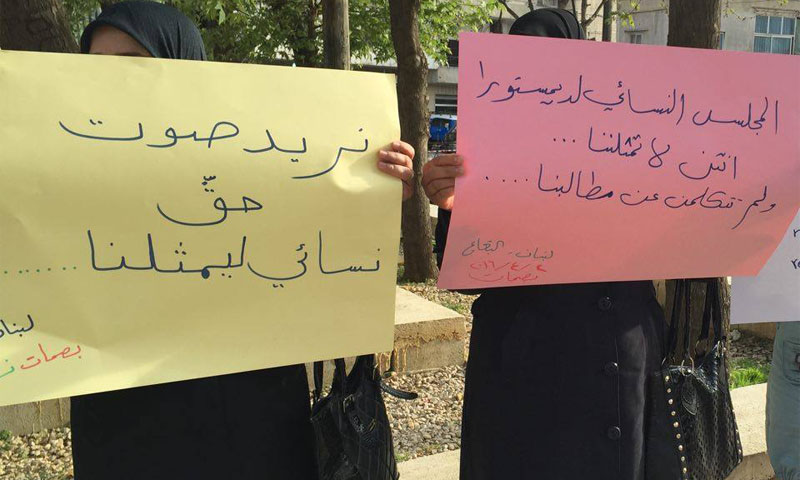 نريد صوت
حقّ
نسائي ليمثلنا ........
لبنا
بصمات
المجلس النسائي لديمستورا
انتن لا تمثلننا ...
ولم تتكلمن عن مطالبنا .....
لبنان - البقاع
٢٠١٦/٤/٢
بصمات